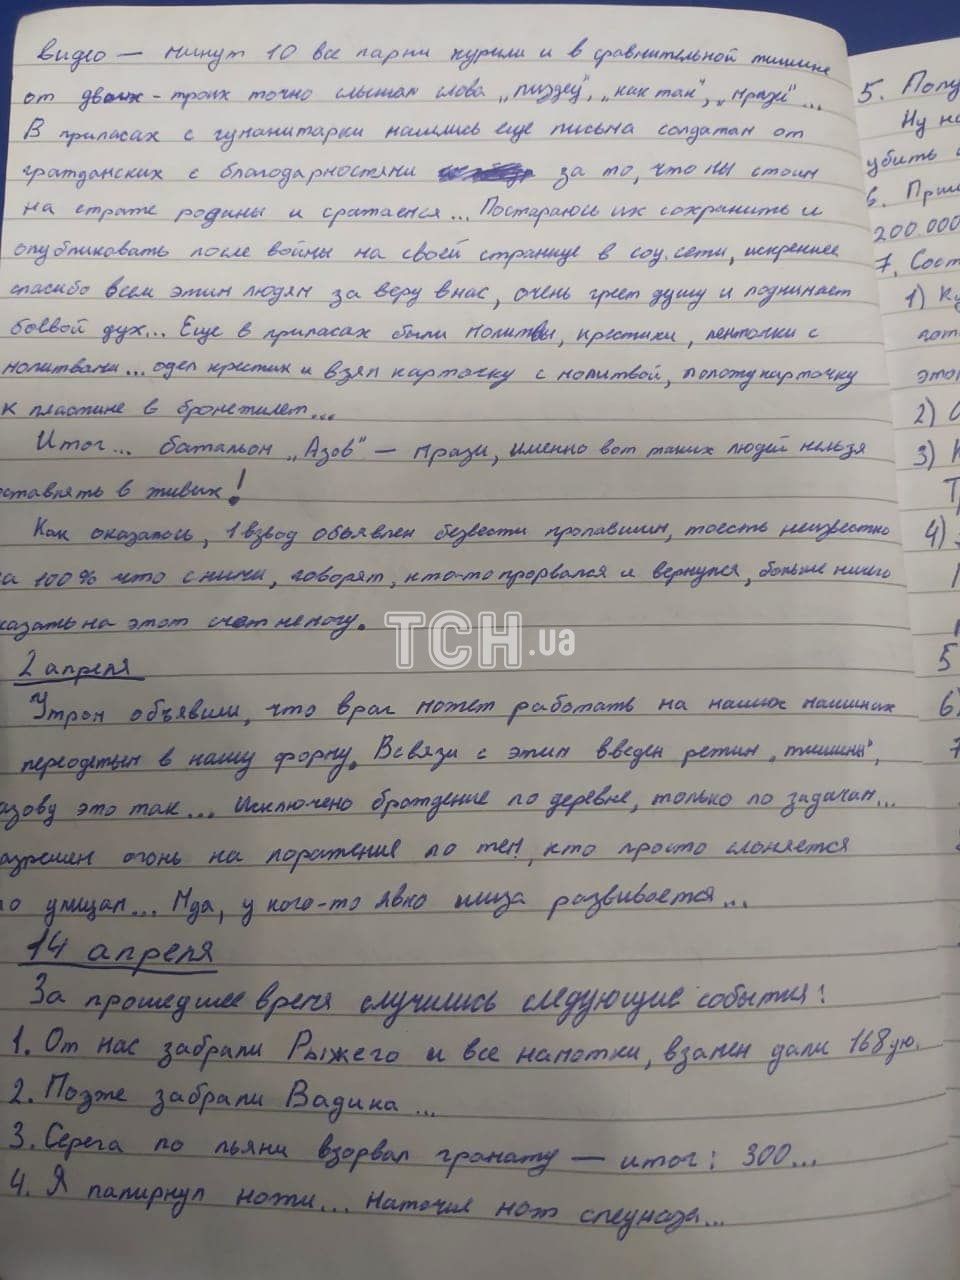 видео — минут 10 все парни курили и в сравнительной тишине
от двоих-троих точно слышал слова „пиздец", „как так", „мрази"...
В припасах с гуманитарки нашлись еще письма солдатам от
гражданских с благодарностями за то, что мы стоим
на страже родины и сражаемся... Постараюсь их сохранить и
опубликовать после войны на своей странице в соц. сети, искреннее
спасибо всем этим людям за веру в нас, очень греет душу и поднимает
боевой дух... Еще в припасах были молитвы, крестики, ленточки с
молитвами... одел крестик и взял карточку с молитвой, положу карточку
к пластине в бронежилет...
Итог... батальон „Азов" — мрази, именно вот таких людей нельзя
оставлять в живых!
Как оказалось, 1 взвод объявлен безвести пропавшим, тоесть неизвестно
на 100% что с ними, говорят, кто-то прорвался и вернулся, больше ничего
сказать на этот счет не могу.
ТСН.ua
2 апреля
Утром объявили, что враг может работать на наших машинах
переодетым в нашу форму. Всвязи с этим введен режим „тишины",
азову это так... Исключено брождение по деревне, только по задачам...
азрешен огонь на поражение по тем, кто просто слоняется
по улицам... Мда, у кого-то явно шиза развивается...
14 апреля
За прошедшее время случились следующие события:
1. От нас забрали Рыжего и все манотки, взамен дали 168ую.
2. Позже забрали Вадика...
3. Серега по пьяни взорвал гранату — итог: 300...
4. Я напирнул ножи... наточил нож спецназа...
5. Полу
Ну на
убить
6. При
200.000
7. Сост
1) Ку
гот
этог
2)
3)
4)
5
6)
7